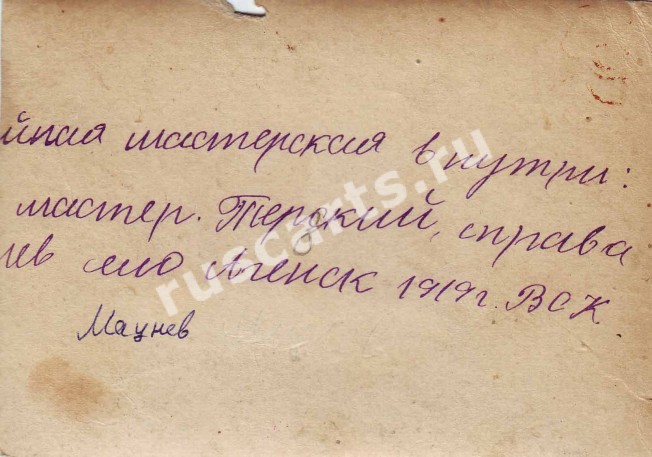 йная мастерская внутри:
мастер. Терский, справа
нев 1919 г. ВСК
Мацнев
ruscarts.ru